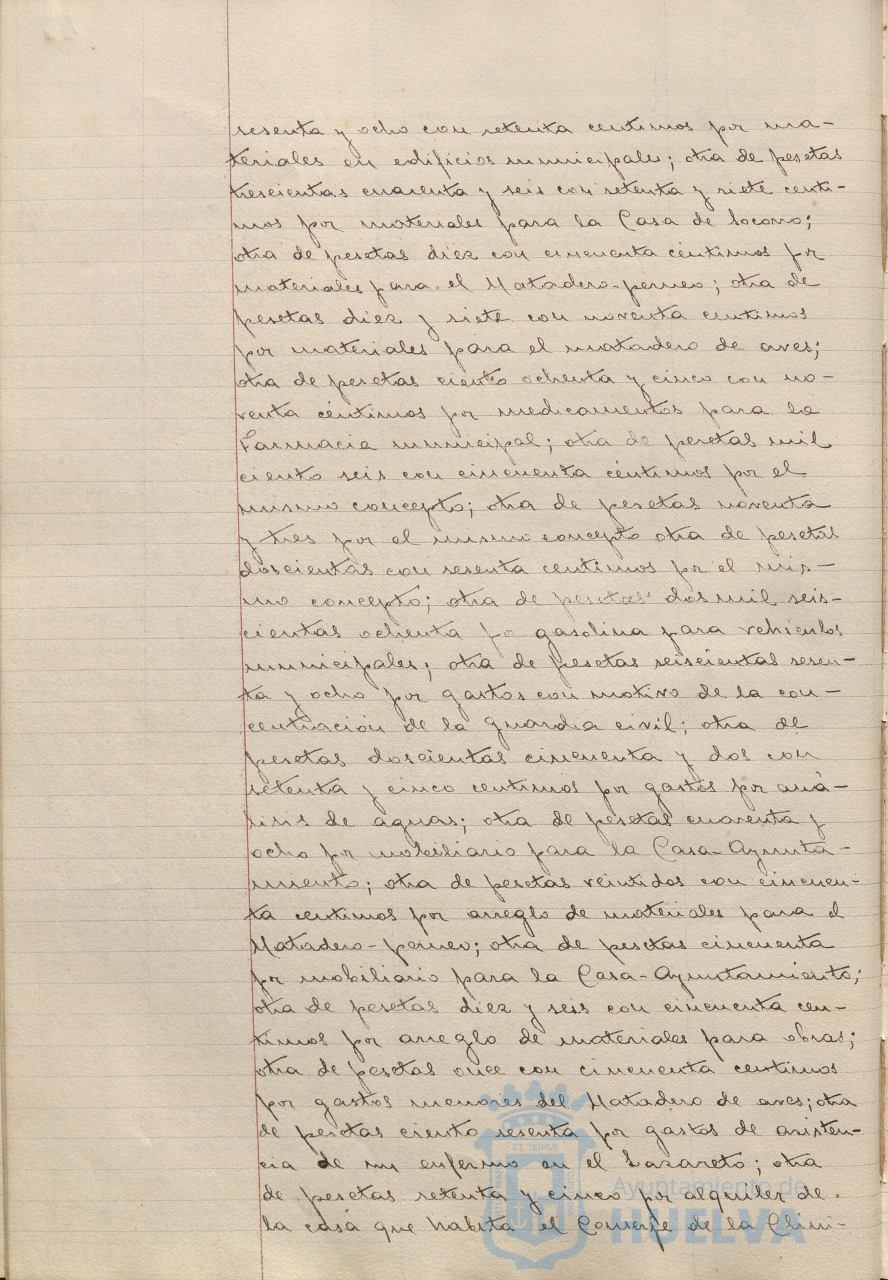 sesenta y ocho con setenta centimos por ma-
teriales en edificios municipales; otra de pesetas
trescientas cuarenta y seis con setenta y siete centi-
mos por materiales para la Casa de Socorro;
otra de pesetas diez con cincuenta céntimos por
materiales para el Matadero-perneo; otra de
pesetas diez y siete con noventa centimos
por materiales para el matadero de aves;
otra de pesetas ciento ochenta y cinco con no-
venta céntimos por medicamentos para la
Farmacia municipal; otra de pesetas mil
ciento seis con cincuenta céntimos por el
mismo concepto; otra de pesetas noventa
y tres por el mismo concepto otra de pesetas
doscientas con sesenta centimos por el mis-
mo concepto; otra de pesetas dos mil seis-
cientas ochenta por gasolina para vehiculos
municipales; otra de pesetas seiscientas sesen-
ta y ocho por gastos con motivo de la con-
centración de la guardia civil; otra de
pesetas doscientas cincuenta y dos con
setenta y cinco centimos por gastos por aná-
lisis de aguas; otra de pesetas cuarenta y
ocho por mobiliario para la Casa-Ayunta-
miento; otra de pesetas veintidos con cincuen-
ta centimos por arreglo de materiales para el
Matadero-perneo; otra de pesetas cincuenta
por mobiliario para la Casa-Ayuntamiento;
otra de pesetas diez y seis con cincuenta cen-
timos por arreglo de materiales para obras;
otra de pesetas once con cincuenta centimos
por gastos menores del Matadero de aves; otra
de pesetas ciento sesenta por gastos de asisten-
cia de un enfermo en el Lazareto; otra
de pesetas setenta y cinco por alquiler de
la casa que habita el Conserje de la Clini-
Ayuntamiento de
HUELVA